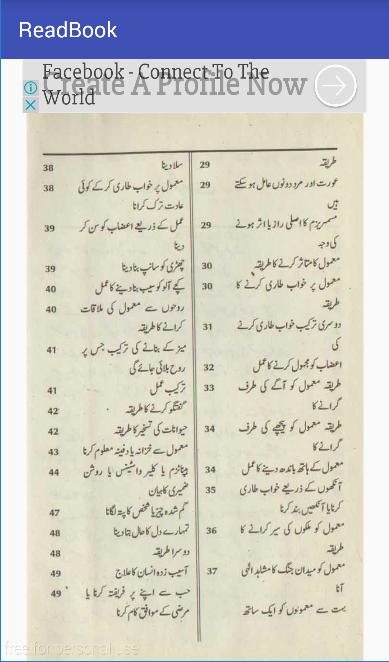 ReadBook
Facebook - Connect To The
World
Create A Profile Now
طریقہ 29
عورت اور مرد دونوں عامل ہو سکتے 29
ہیں
مسمریزم کا اصلی راز یا اثر ہونے 29
کی وجہ
معمول کا متاثر کرنے کا طریقہ 30
معمول پر خواب طاری کرنے کا 30
طریقہ
دوسری ترکیب خواب طاری کرنے 31
کی
اعضاب کو مجہول کرنے کا عمل 32
طریقہ معمول کو آگے کی طرف 33
گرانے کا
طریقہ معمول کو پیچھے کی طرف 34
گرانے کا
معمول کے ہاتھ باندھ دینے کا عمل 34
آنکھوں کے ذریعے خواب طاری 35
کرنا یا آنکھیں بند کرنا
معمول کو ملکوں کی سیر کرانے کا 36
طریقہ
معمول کو میدان جنگ کا مشاہدہ 37
آنا
بہت سے معمولوں کو ایک ساتھ
سلا دینا 38
معمول پر خواب طاری کر کے کوئی 38
عادت ترک کرانا
عمل کے ذریعے اعضاب کو سن کر 39
دینا
چھڑی کو سانپ بنا دینا 39
کچے آلو کو سیب بنا دینے کا عمل 40
روحوں سے معمول کی ملاقات 40
کرانے کا طریقہ
میز کے بنانے کی ترکیب جس پر 41
روح بلائی جائے گی
ترکیب عمل 41
گفتگو کرنے کا طریقہ 42
حیوانات کی تسخیر کا طریقہ 42
معمول سے خزانہ یا دفینہ معلوم کرنا 43
ہپناٹزم یا کلیر وائنس یا روشن 44
ضمیری کا بیان
گم شدہ چیز یا شخص کا پتہ لگانا 47
تمہارے دل کا حال بتا دینا 48
دوسرا طریقہ 48
آسیب زدہ انسان کا علاج 49
حب سے اپنے پر فریفتہ کرنا یا 49
مرضی کے موافق کام کرنا
free for personal use